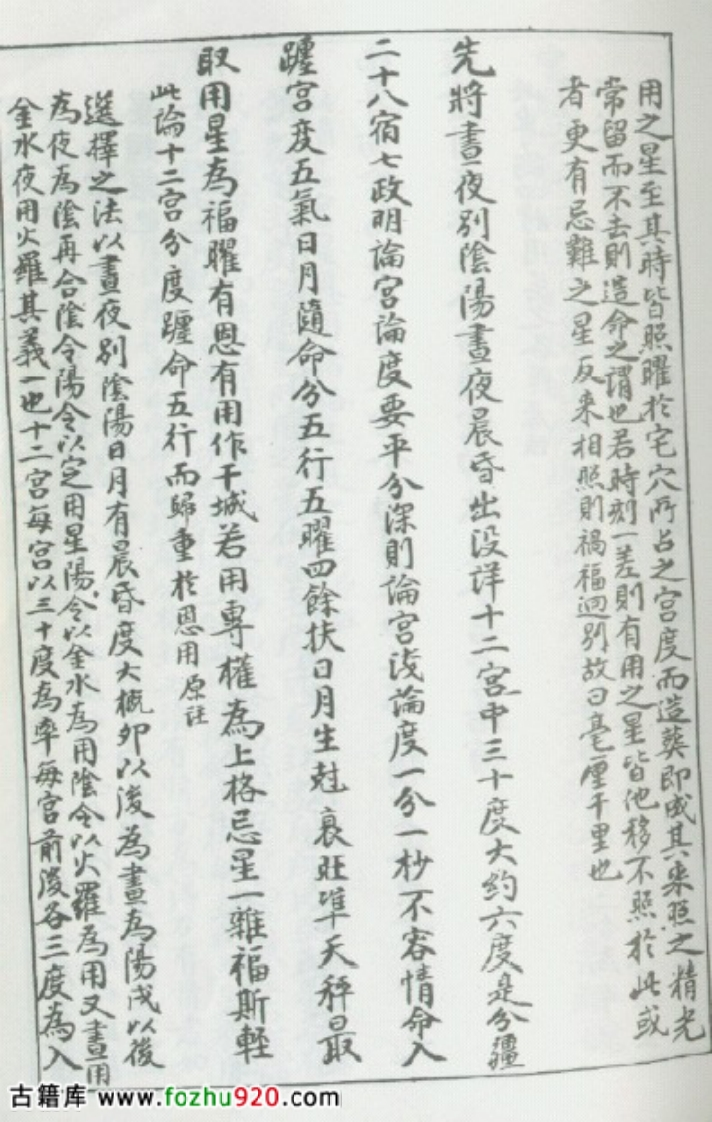 用之星至其時皆照曜於宅穴所占之宮度而造葬即咸其來照之精光
常留而不去則造命之謂也若時刻一差則有用之星皆他移不照於此或
者更有忌難之星反來相照則禍福迥別故曰毫厘千里也
先將晝夜別陰陽晝夜晨昏出没詳十二宮中三十度大約六度是分疆
二十八宿七政明論宮論度要平分深則論宮浅論度一分一秒不容情命入
躔宮度五氣日月隨命分五行五曜四餘扶日月生尅衰旺準天秤最
取用星為福曜有恩有用作干城若用專權為上格忌星一雜福斯輕
此論十二宮分度躔命五行而歸重於恩用原註
選擇之法以晝夜別陰陽日月有晨昏度大概卯以後為晝為陽戌以後
為夜為陰再合陰令陽令以定用星陽令以金水為用陰令以火羅為用又晝用
金水夜用火羅其義一也十二宮每宮以三十度為率每宮前後各三度為入
古籍库 www.fozhu920.com